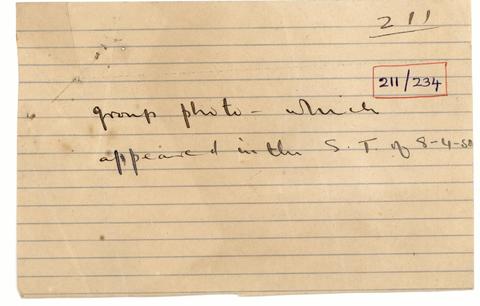 211
211/234
group photo - which
appeared in the S. T. of 8-4-50